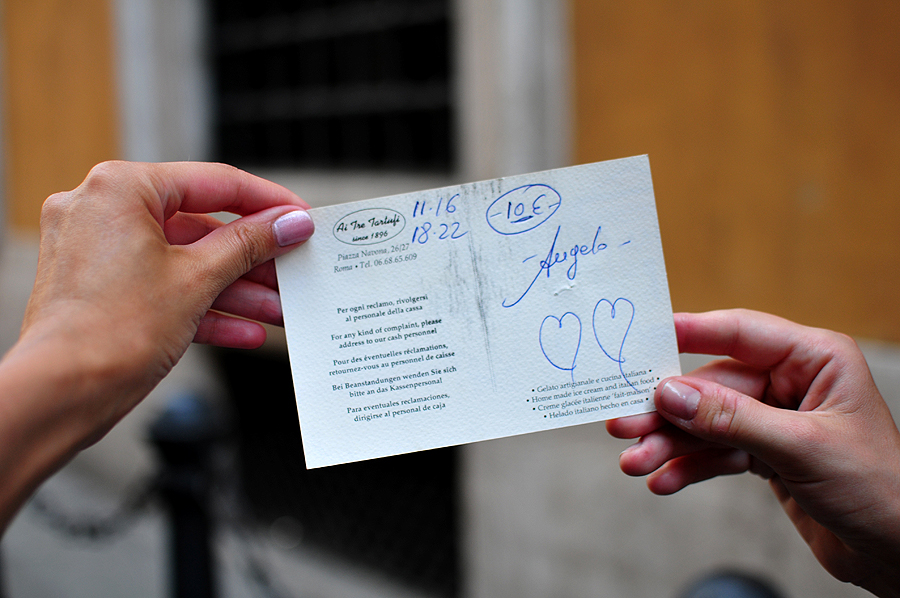 Ai Tre Tartufi
since 1896
Piazza Navona, 26/27
Roma • Tel. 06.68.65.609
11-16
18-22
-10€-
-Angelo-
Per ogni reclamo, rivolgersi
al personale della cassa
For any kind of complaint, please
address to our cash personnel
Pour des éventuelles réclamations,
retournez-vous au personnel de caisse
Bei Beanstandungen wenden Sie sich
bitte an das Kassenpersonal
Para eventuales reclamaciones,
dirigirse al personal de caja
• Gelato artigianale e cucina italiana •
• Home made ice cream and italian food •
• Creme glacée italienne 'fait-maison' •
• Helado italiano hecho en casa •